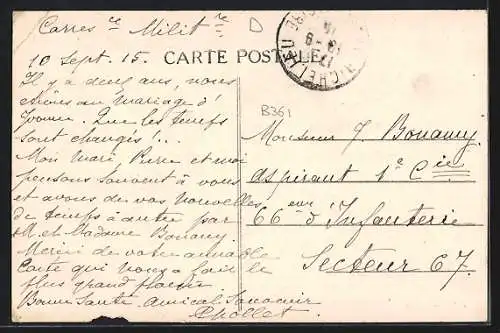 Carresce Militre
D
10 Sept. 15. CARTE POSTALE
RICHELIEU
B361
Il y a deux ans, nous
étions au mariage d'
Yvonne. Que les temps
sont changés !...
Mon mari, Pierre et moi
pensons souvent à vous
et avons de vos nouvelles
de temps à autre par
M. et Madame Bonamy.
Merci de votre aimable
Carte qui nous a fait le
plus grand plaisir.
Bonne Santé Amical Souvenir
Chollet.
Monsieur J. Bonamy
aspirant 1e Cie
66eme d'Infanterie
Secteur 67.